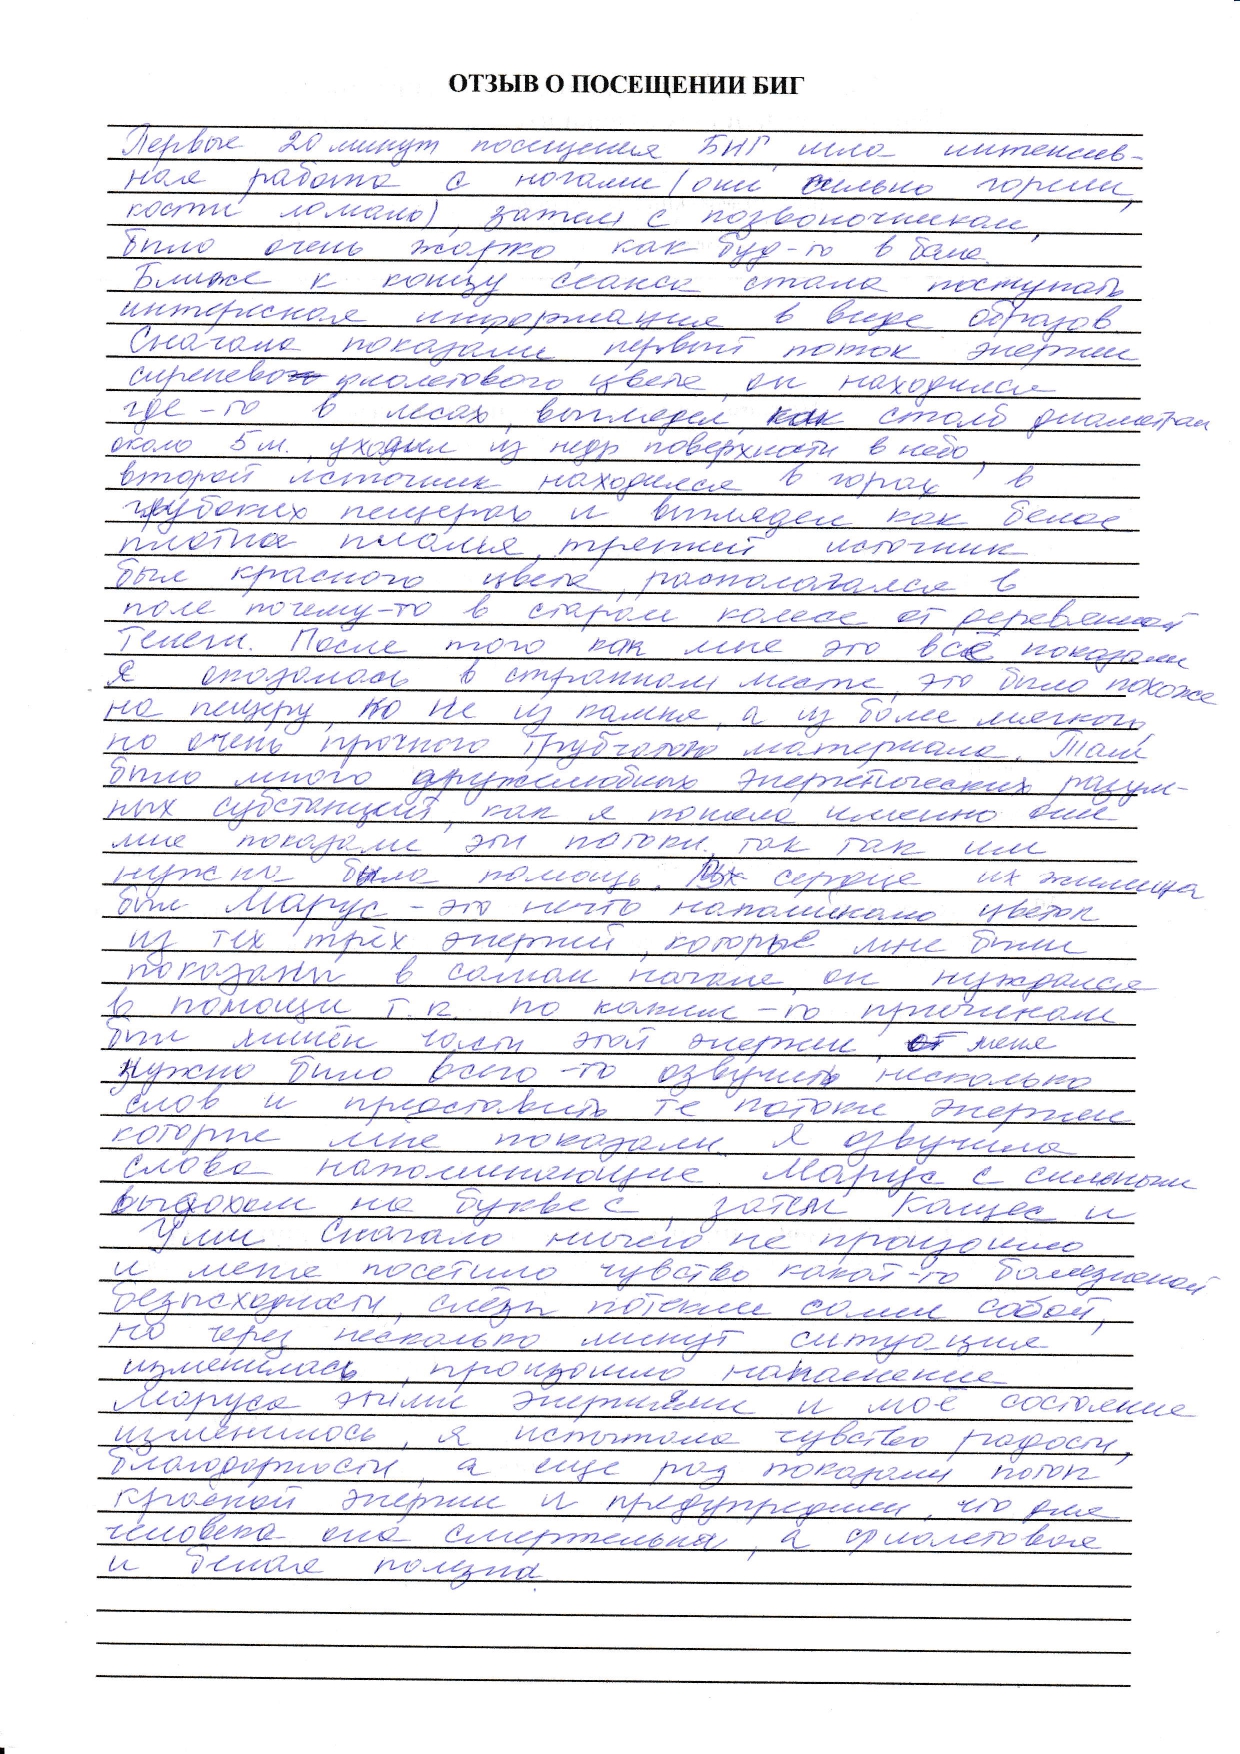 ОТЗЫВ О ПОСЕЩЕНИИ БИГ
Первые 20 минут посещения БИГ шла интенсив-
ная работа с ногами (они сильно горели,
кости ломало), затем с позвоночником,
было очень жарко, как буд-то в бане.
Ближе к концу сеанса стала поступать
интересная информация в виде образов.
Сначала показали первый поток энергии
сиренево фиолетового цвета, он находился
где-то в лесах, выглядел, как столб диаметром
около 5 м., уходил из недр поверхности в небо,
второй источник находился в горах в
глубоких пещерах и выглядел как белое
плотное пламя, третий источник
был красного цвета, располагался в
поле почему-то в старом колесе от деревянной
телеги. После того как мне это всё показали
я оказалась в странном месте, это было похоже
на пещеру, но не из камня, а из более мягкого,
но очень прочного трубчатого материала. Там
было много дружелюбных энергетических разум-
ных субстанций, как я поняла именно они
мне показали эти потоки, так как им
нужна была помощь. сердце их жилища
был Марус - это нечто напоминало цветок
из тех трёх энергий, которые мне были
показаны в самом начале, он нуждался
в помощи т.к. по каким-то причинам
был лишён части этой энергии, от меня
нужно было всего-то озвучить несколько
слов и представить те потоки энергии
которые мне показали. Я озвучила
слова напоминающие Марус с сильным
выдохом на букве с, затем Камцес и
Уми. Сначало ничего не произошло
и меня посетило чувство какой-то болезненной
безысходности, слёзы потекли сами собой,
но через несколько минут ситуация
изменилась, произошло наполнение
Маруса этими энергиями и моё состояние
изменилось, я испытала чувство радости,
благодарности, а еще раз показали поток
красной энергии и предупредили, что для
человека она смертельна, а фиолетовая
и белая полезна.